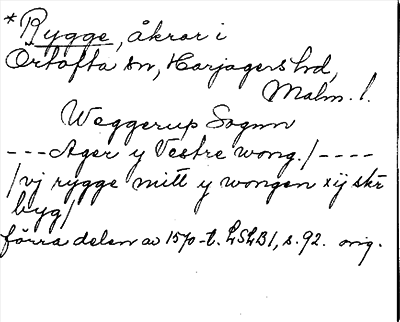 *Rygge, åkrar i
Örtofta sn, Harjagers hd,
Malm. l.
Weggerup Sognn
---Ager y Vestre wong./----
/vj rygge mitt y wongen xij skr
byg/
förra delen av 1570-t. LSLB1, s. 92. orig.